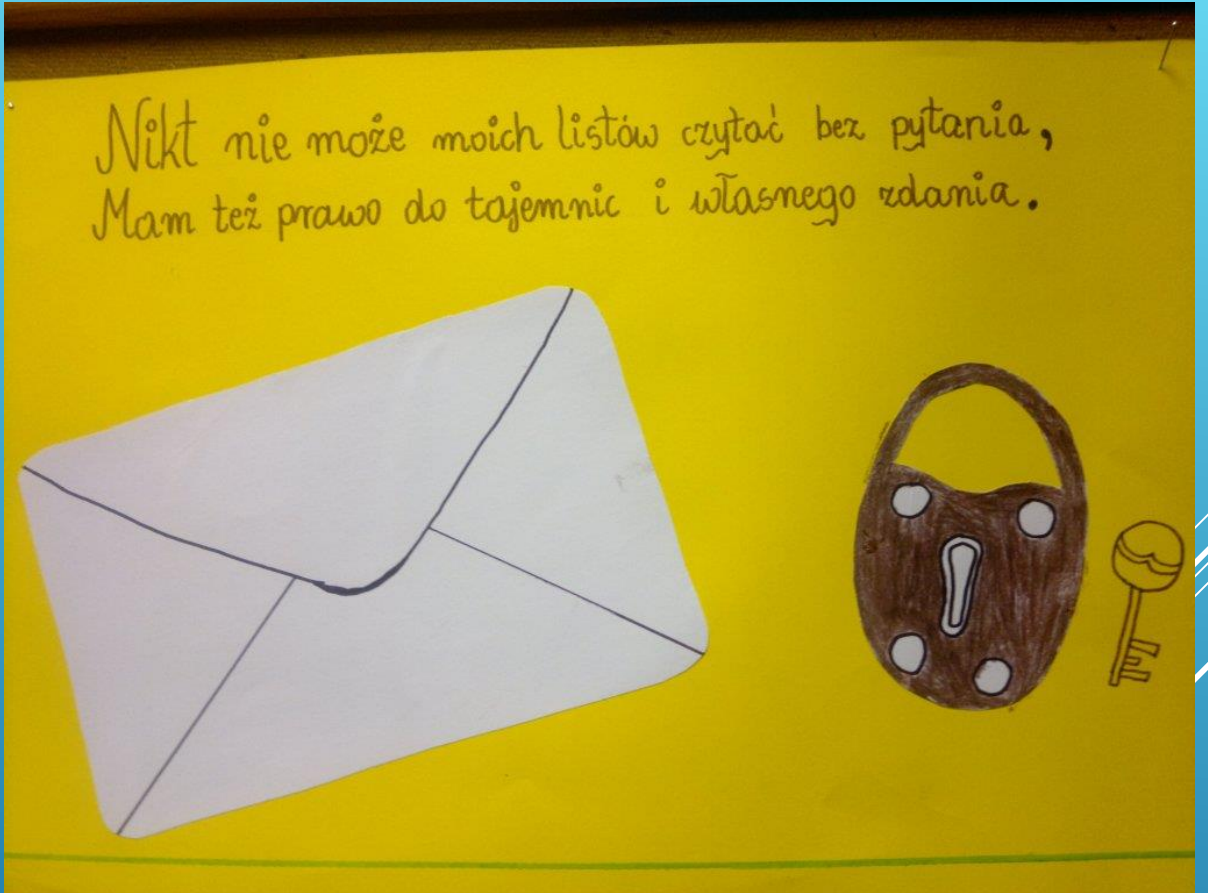 Nikt nie może moich listów czytać bez pytania,
Mam też prawo do tajemnic i własnego zdania.